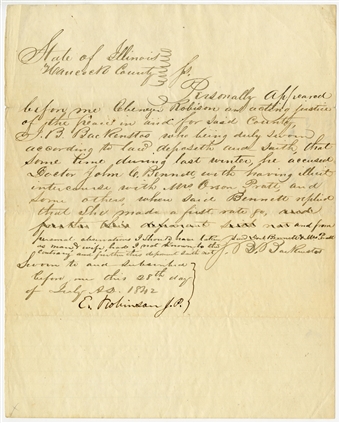 State of Illinois
Hancock County } ss.
Personally Appeared
before me Ebenezer Robinson an acting justice
of the peace in and for Said County
J. B. Backenstos who being duly Sworn
according to law deposeth and Saith, that
some time during last winter, he accused
Doctor John C. Bennett with having illicit
intercourse with Mrs Orson Pratt, and
some others, when said Bennett replied
that She made a first rate go, and
further this deponent saith not and from
personal observations I should have taken said Doct. Bennett & Mrs Pratt
as man & wife, had I not known to the
contrary and further this deponent saith not
J. B. Backenstos
Sworn to and Subscribed
before me this 28th day
of July A.D. 1842
E. Robinson J.P.